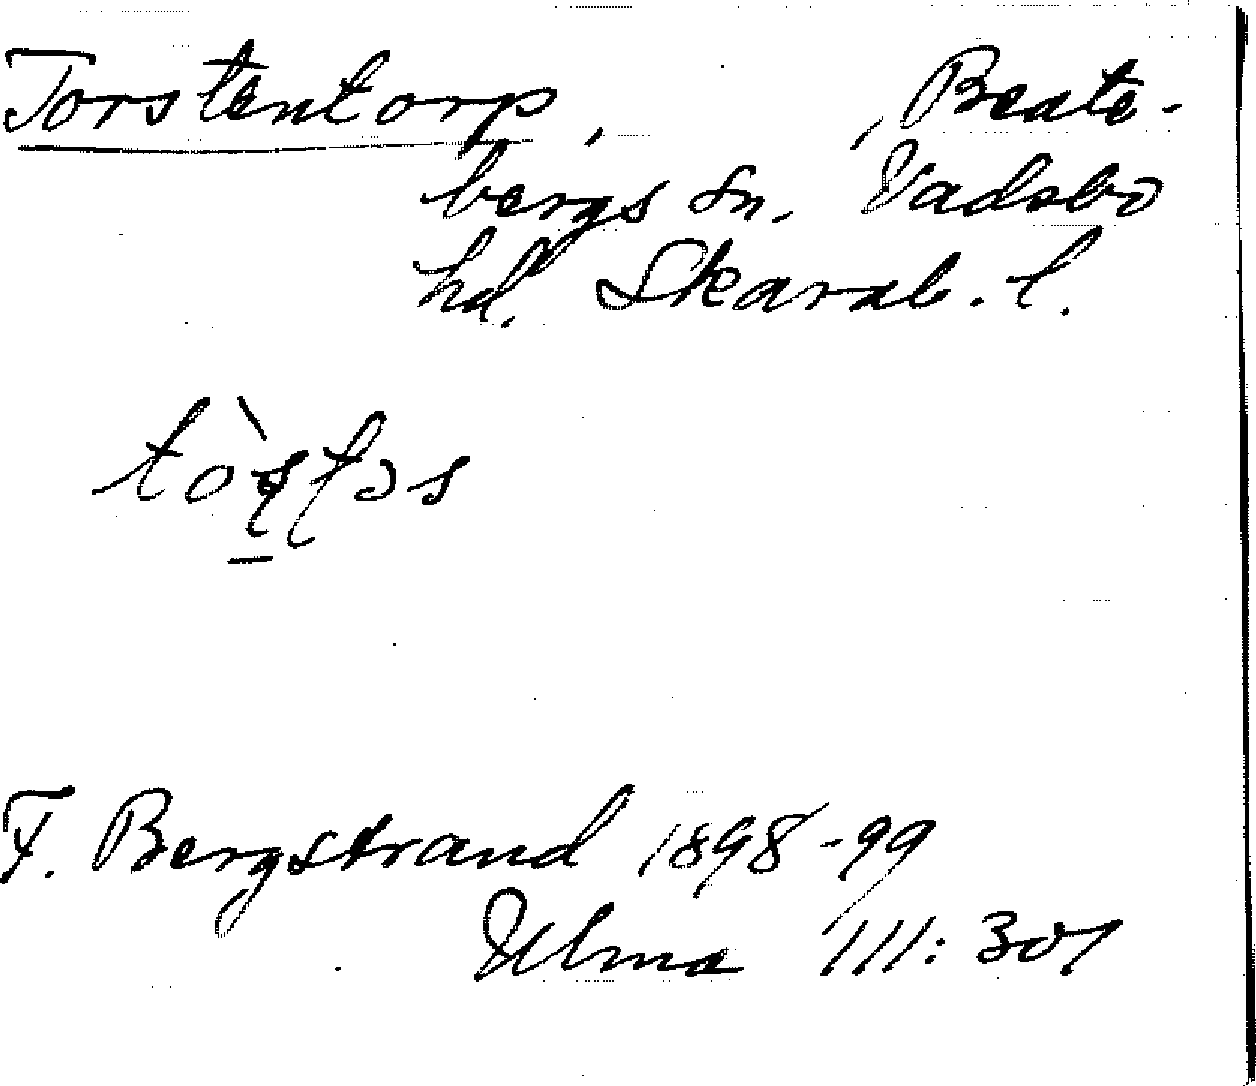 Torstentorp, , Beate-
bergs sn. Vadsbo
hd. Skarab. l.
F. Bergstrand 1898-99
Ulma 111:301